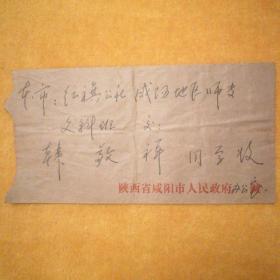 本市：红旗公社 咸阳地区师专
文科班 交
韩敬祥 同学收
陕西省咸阳市人民政府办公室